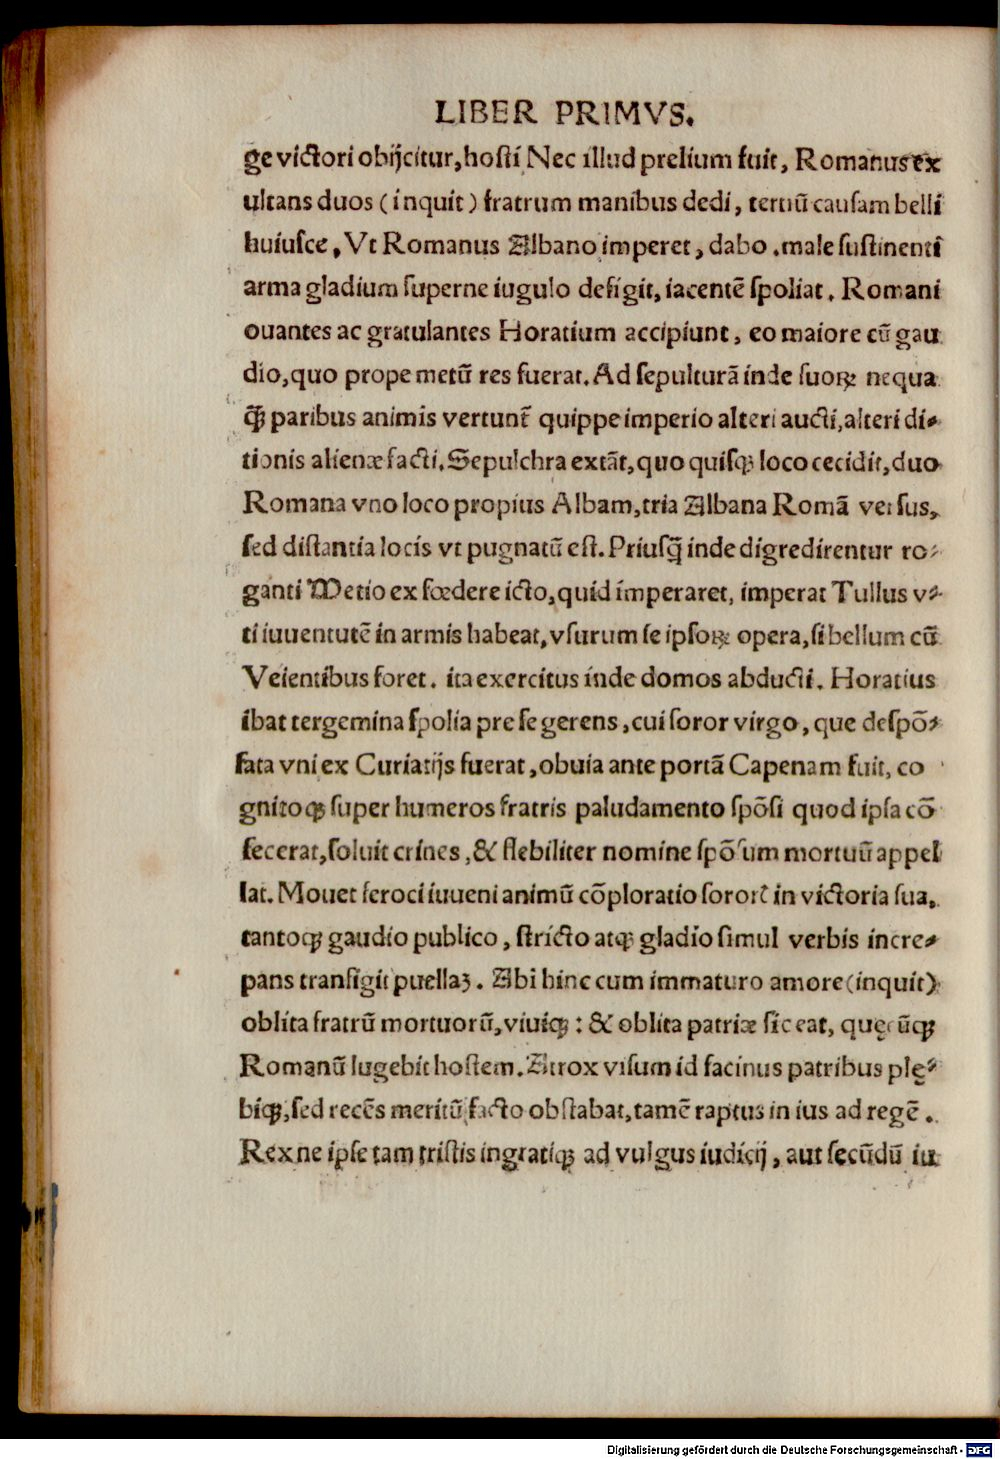 LIBER PRIMVS.
ge victori obijcitur, hosti Nec illud prelium fuit, Romanus ex
ultans duos (inquit) fratrum manibus dedi, tertiū causam belli
huiusce, Vt Romanus Albano imperet, dabo. male sustinenti
arma gladium superne iugulo defigit, iacentē spoliat. Romani
ouantes ac gratulantes Horatium accipiunt, eo maiore cū gau
dio, quo prope metū res fuerat. Ad sepulturā inde suoꝝ nequa
ꝙ̄ paribus animis vertunt̄ quippe imperio alteri aucti, alteri di-
tionis alienæ facti. Sepulchra extāt, quo quisqꝫ loco cecidit, duo
Romana vno loco propius Albam, tria Albana Romā versus,
sed distantia locis vt pugnatū est. Priusq̄ inde digredirentur ro-
ganti Metio ex fœdere icto, quid imperaret, imperat Tullus v-
ti iuuentutē in armis habeat, vsurum se ipsoꝝ opera, si bellum cū
Veientibus foret. ita exercitus inde domos abducti. Horatius
ibat tergemina spolia pre se gerens, cui soror virgo, que despō-
sata vni ex Curiatijs fuerat, obuia ante portā Capenam fuit, co
gnitoqꝫ super humeros fratris paludamento spōsi quod ipsa cō
fecerat, soluit crines, & flebiliter nomine spōsum mortuū appel
lat. Mouet feroci iuueni animū cōploratio sorort̄ in victoria sua,
tantoqꝫ gaudio publico, stricto atqꝫ gladio simul verbis incre-
pans transfigit puellaꝫ. Abi hinc cum immaturo amore (inquit)
oblita fratrū mortuorū, viuiqꝫ: & oblita patriæ sic eat, quęcūqꝫ
Romanū lugebit hostem. Atrox visum id facinus patribus plę-
biqꝫ, sed recēs meritū facto obstabat, tamē raptus in ius ad regē.
Rex ne ipse tam tristis ingratiqꝫ ad vulgus iudicij, aut secūdū iu
Digitalisierung gefördert durch die Deutsche Forschungsgemeinschaft - DFG